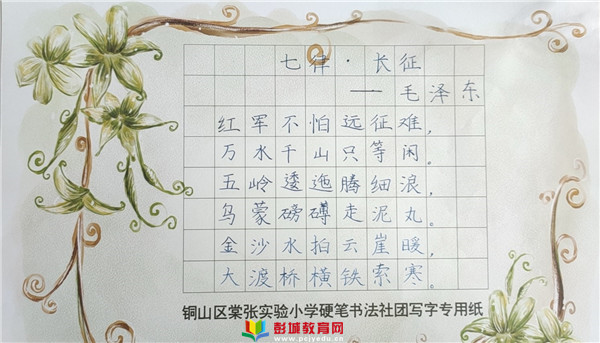 七律·长征
——毛泽东
红军不怕远征难，
万水千山只等闲。
五岭逶迤腾细浪，
乌蒙磅礴走泥丸。
金沙水拍云崖暖，
大渡桥横铁索寒。
铜山区棠张实验小学硬笔书法社团写字专用纸
彭城教育网
www.pcjyedu.cn